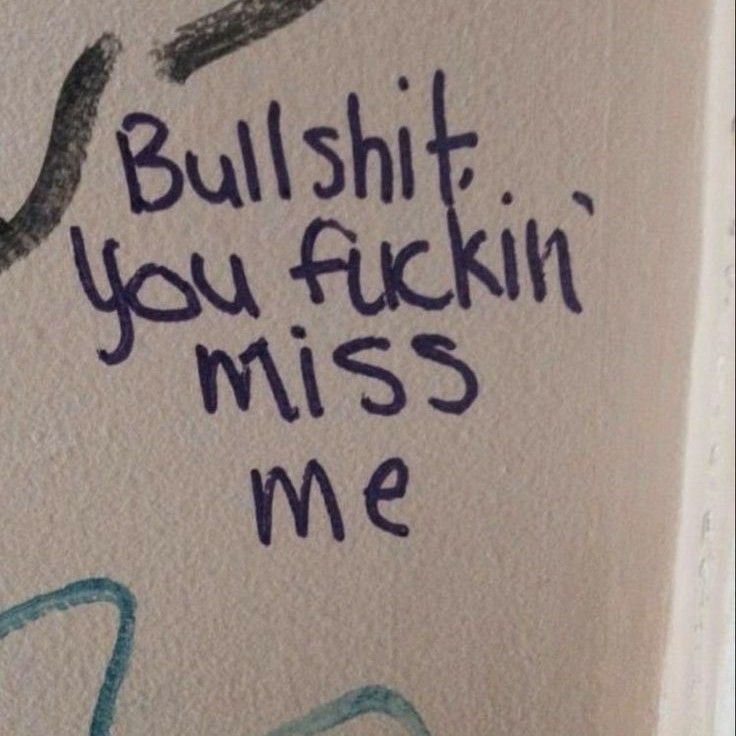 Bullshit,
you fuckin'
miss
me